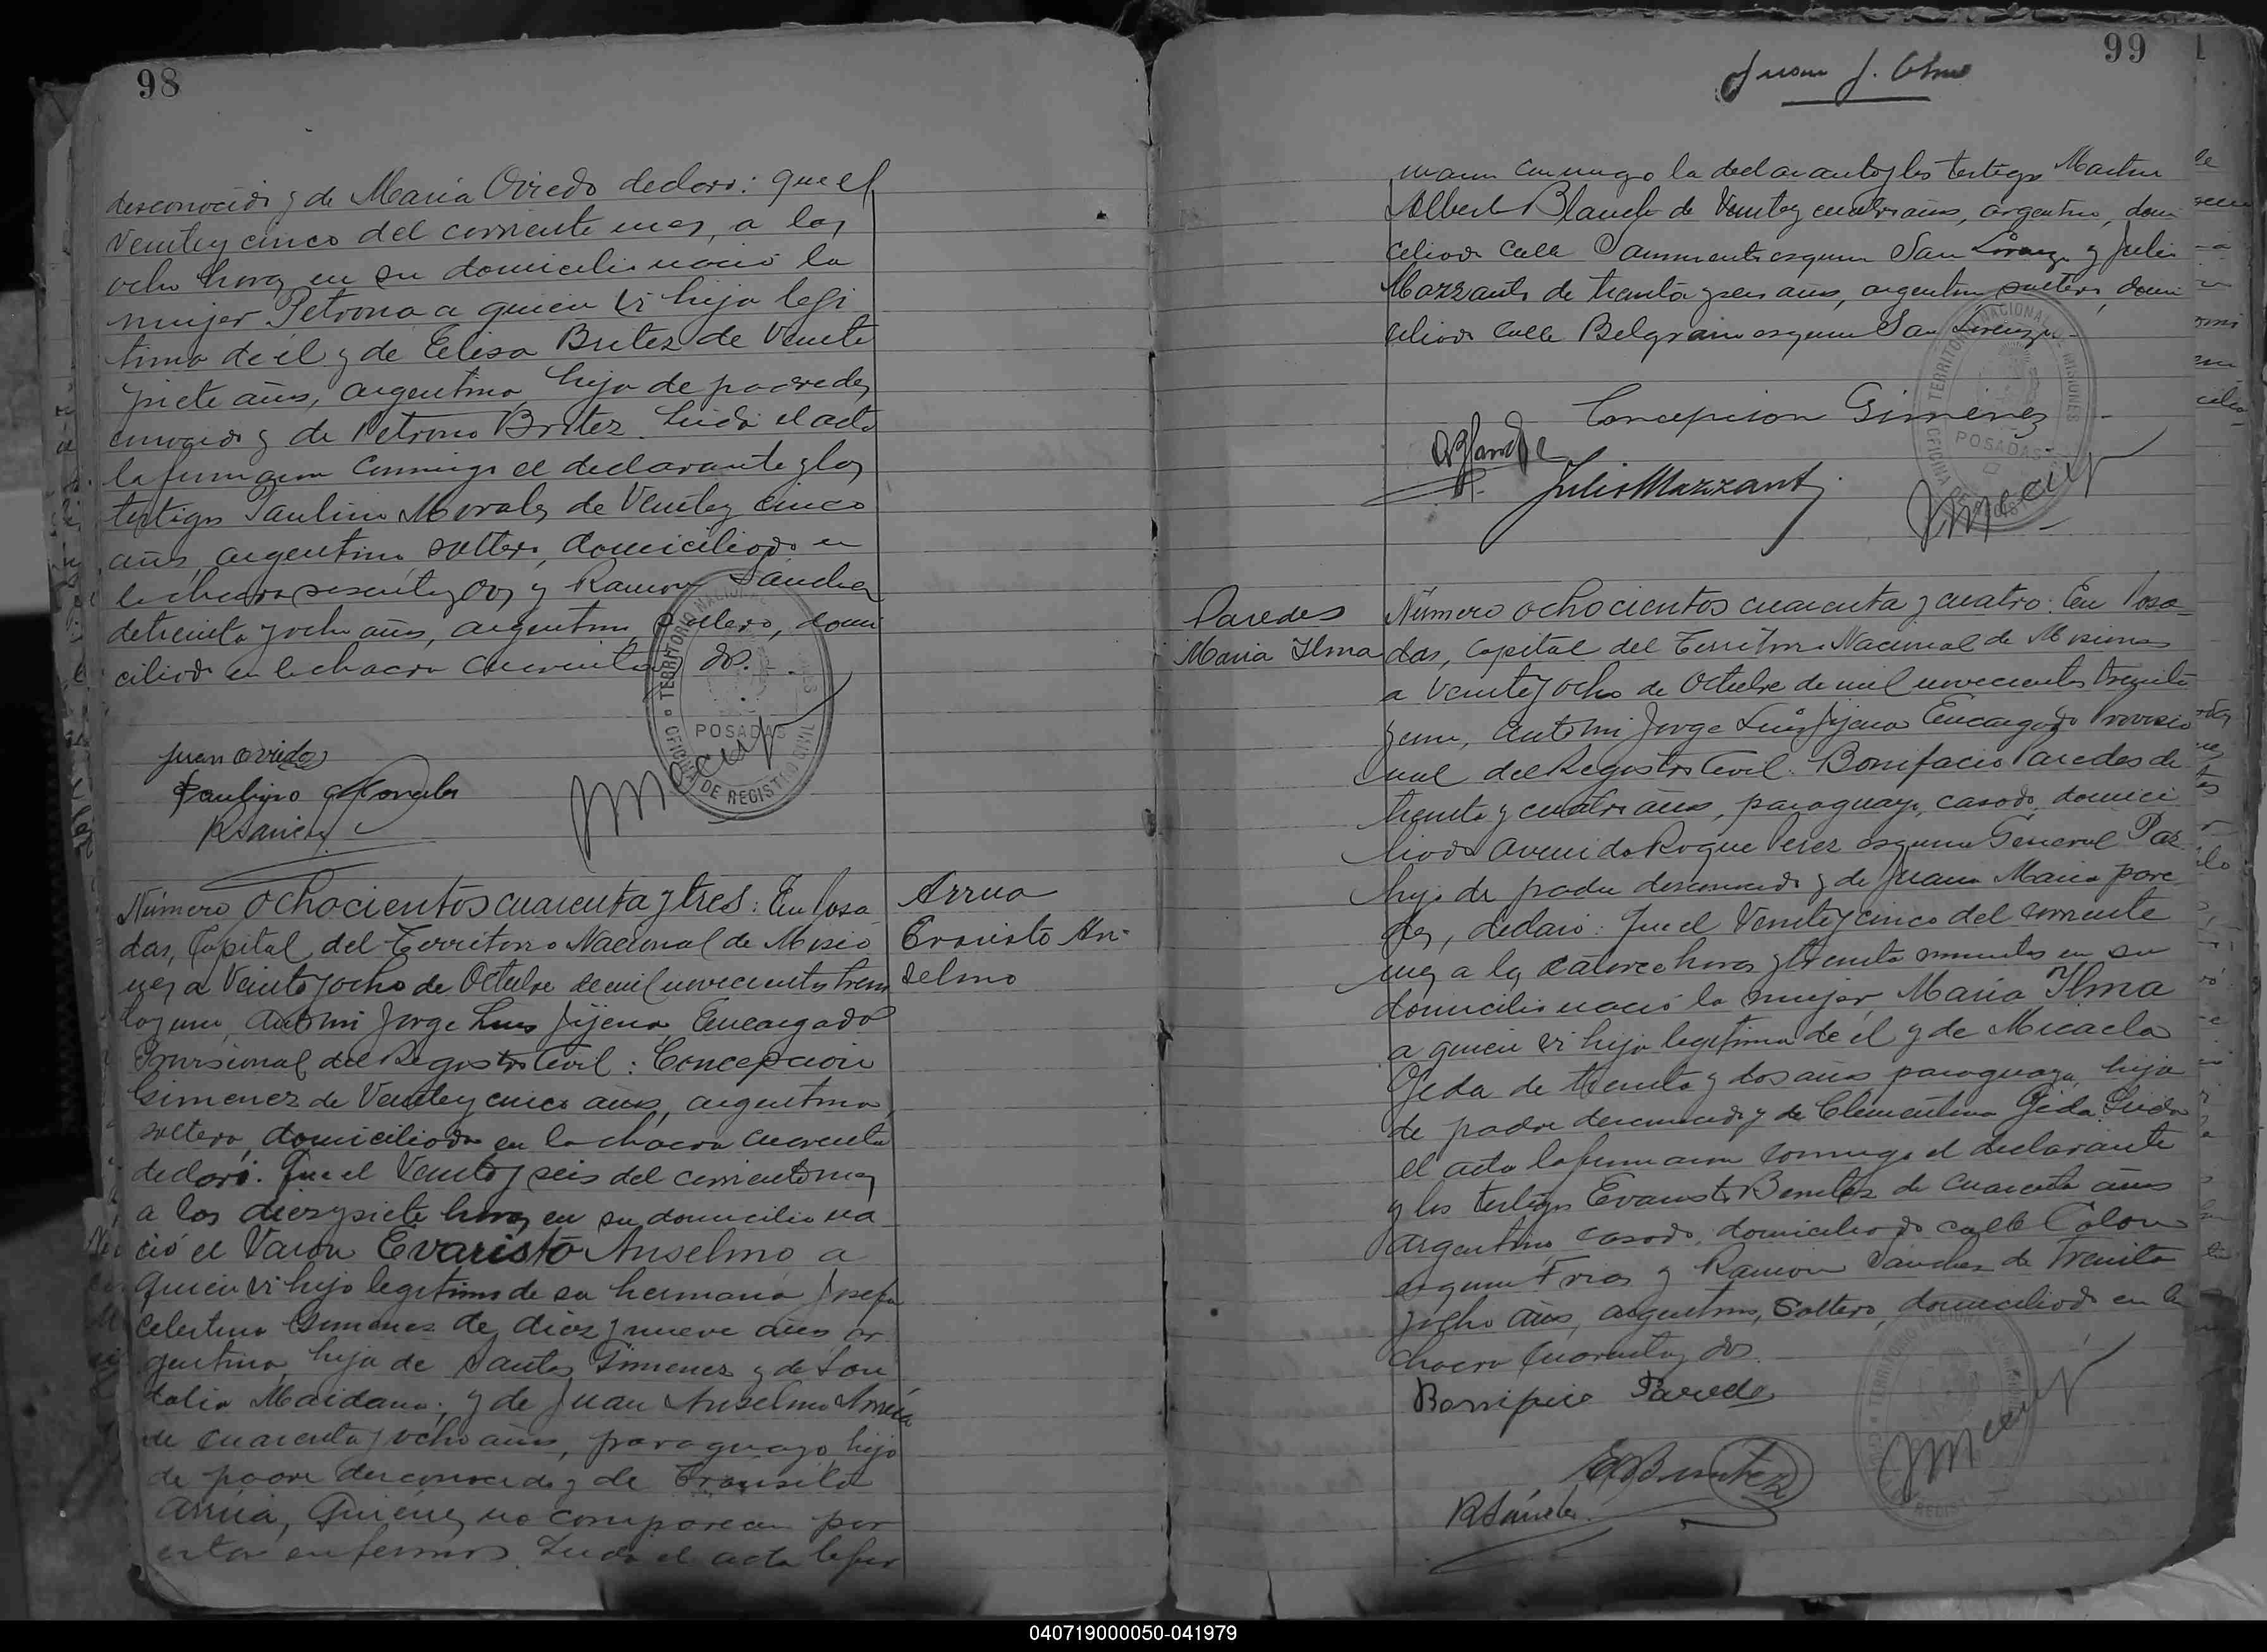 98
desconocido y de Maria Oviedo declaro: que el
Veintey cinco del corriente mes, a las
ocho horas en su domicilio nació la
mujer Petrona a quien vi hija legi
tima de él y de Elisa Britez de Veinte
siete años, argentina, hija de padre des
conocido y de Petrona Britez. Leida el acta
la firmaron conmigo el declarante y los
testigos Paulino Morales de Veintey cinco
años, argentino, soltero, domiciliado en
la chacra sesentay dos y Ramon Sanchez
de treinta y ocho años, argentino, soltero, domi
ciliado en la chacra cuarenta y dos.
TERRITORIO NACIONAL DE MISIONES
POSADAS
OFICINA DE REGISTRO CIVIL
Juan Oviedo
Paulino Morales
R Sanchez
Número ochocientos cuarenta y tres: En Posa
das, Capital del Territorio Nacional de Misio
nes a Veinte y ocho de Octubre de mil novecientos trein
ta y uno, ante mi Jorge Luis Jijena, Encargado
Provisional del Registro Civil: Concepcion
Gimenez de Veintey cinco años, argentina,
soltera, domiciliada en la chacra cuarenta
declaró: Que el Veinte y seis del corriente mes
a las diez y siete horas en su domicilio na
ció el Varon Evaristo Anselmo a
quien vi hijo legitimo de su hermana Josefa
Celestina Gimenez de diez y nueve años, ar
gentina, hija de Santos Gimenez y de
Maidana; y de Juan Anselmo Arrúa
de cuarenta y ocho años, paraguayo, hijo
de padre desconocido y de Transito
Arrúa, Quienes no comparecen por
estar enfermos. Leida el acta la fir
Arrua
Evaristo An-
selmo
99
Juan J.
maron conmigo la declarante y los testigos Martin
Alberto Blanch de Veintey cuatro años, argentino, domi
ciliado calle Sarmiento esquina San Lorenzo y Julio
Mazzanti de treinta y seis años, argentino, soltero, domi
ciliado calle Belgrano esquina San Lorenzo.
Concepcion Gimenez
Julio Mazzanti
TERRITORIO NACIONAL DE MISIONES
POSADAS
Paredes
Maria Ilma
Número ochocientos cuarenta y cuatro: En Posa-
das, Capital del Territorio Nacional de Misiones
a Veinte y ocho de Octubre de mil novecientos treinta
y uno, ante mi Jorge Luis Jijena Encargado Provisio
nal del Registro Civil: Bonifacio Paredes de
treinta y cuatro años, paraguayo, casado, domici
liado avenida Roque Perez esquina General Paz
hijo de padre desconocido y de Juana Maria Pare
des, declaró: Que el Veintey cinco del corriente
mes a las catorce horas y treinta minutos en su
domicilio nació la mujer Maria Ilma
a quien vi hija legitima de él y de Micaela
Ojeda de treinta y dos años, paraguaya, hija
de padre desconocido y de Clementina Ojeda. Leida
el acta la firmaron conmigo el declarante
y los testigos Evaristo Benitez de cuarenta años
argentino, casado, domiciliado calle Colon
esquina Frias y Ramon Sanchez de Treinta
y ocho años, argentino, soltero, domiciliado en la
chacra Cuarenta y dos.
Bonifacio Paredes
E Benitez
R Sanchez
040719000050-041979